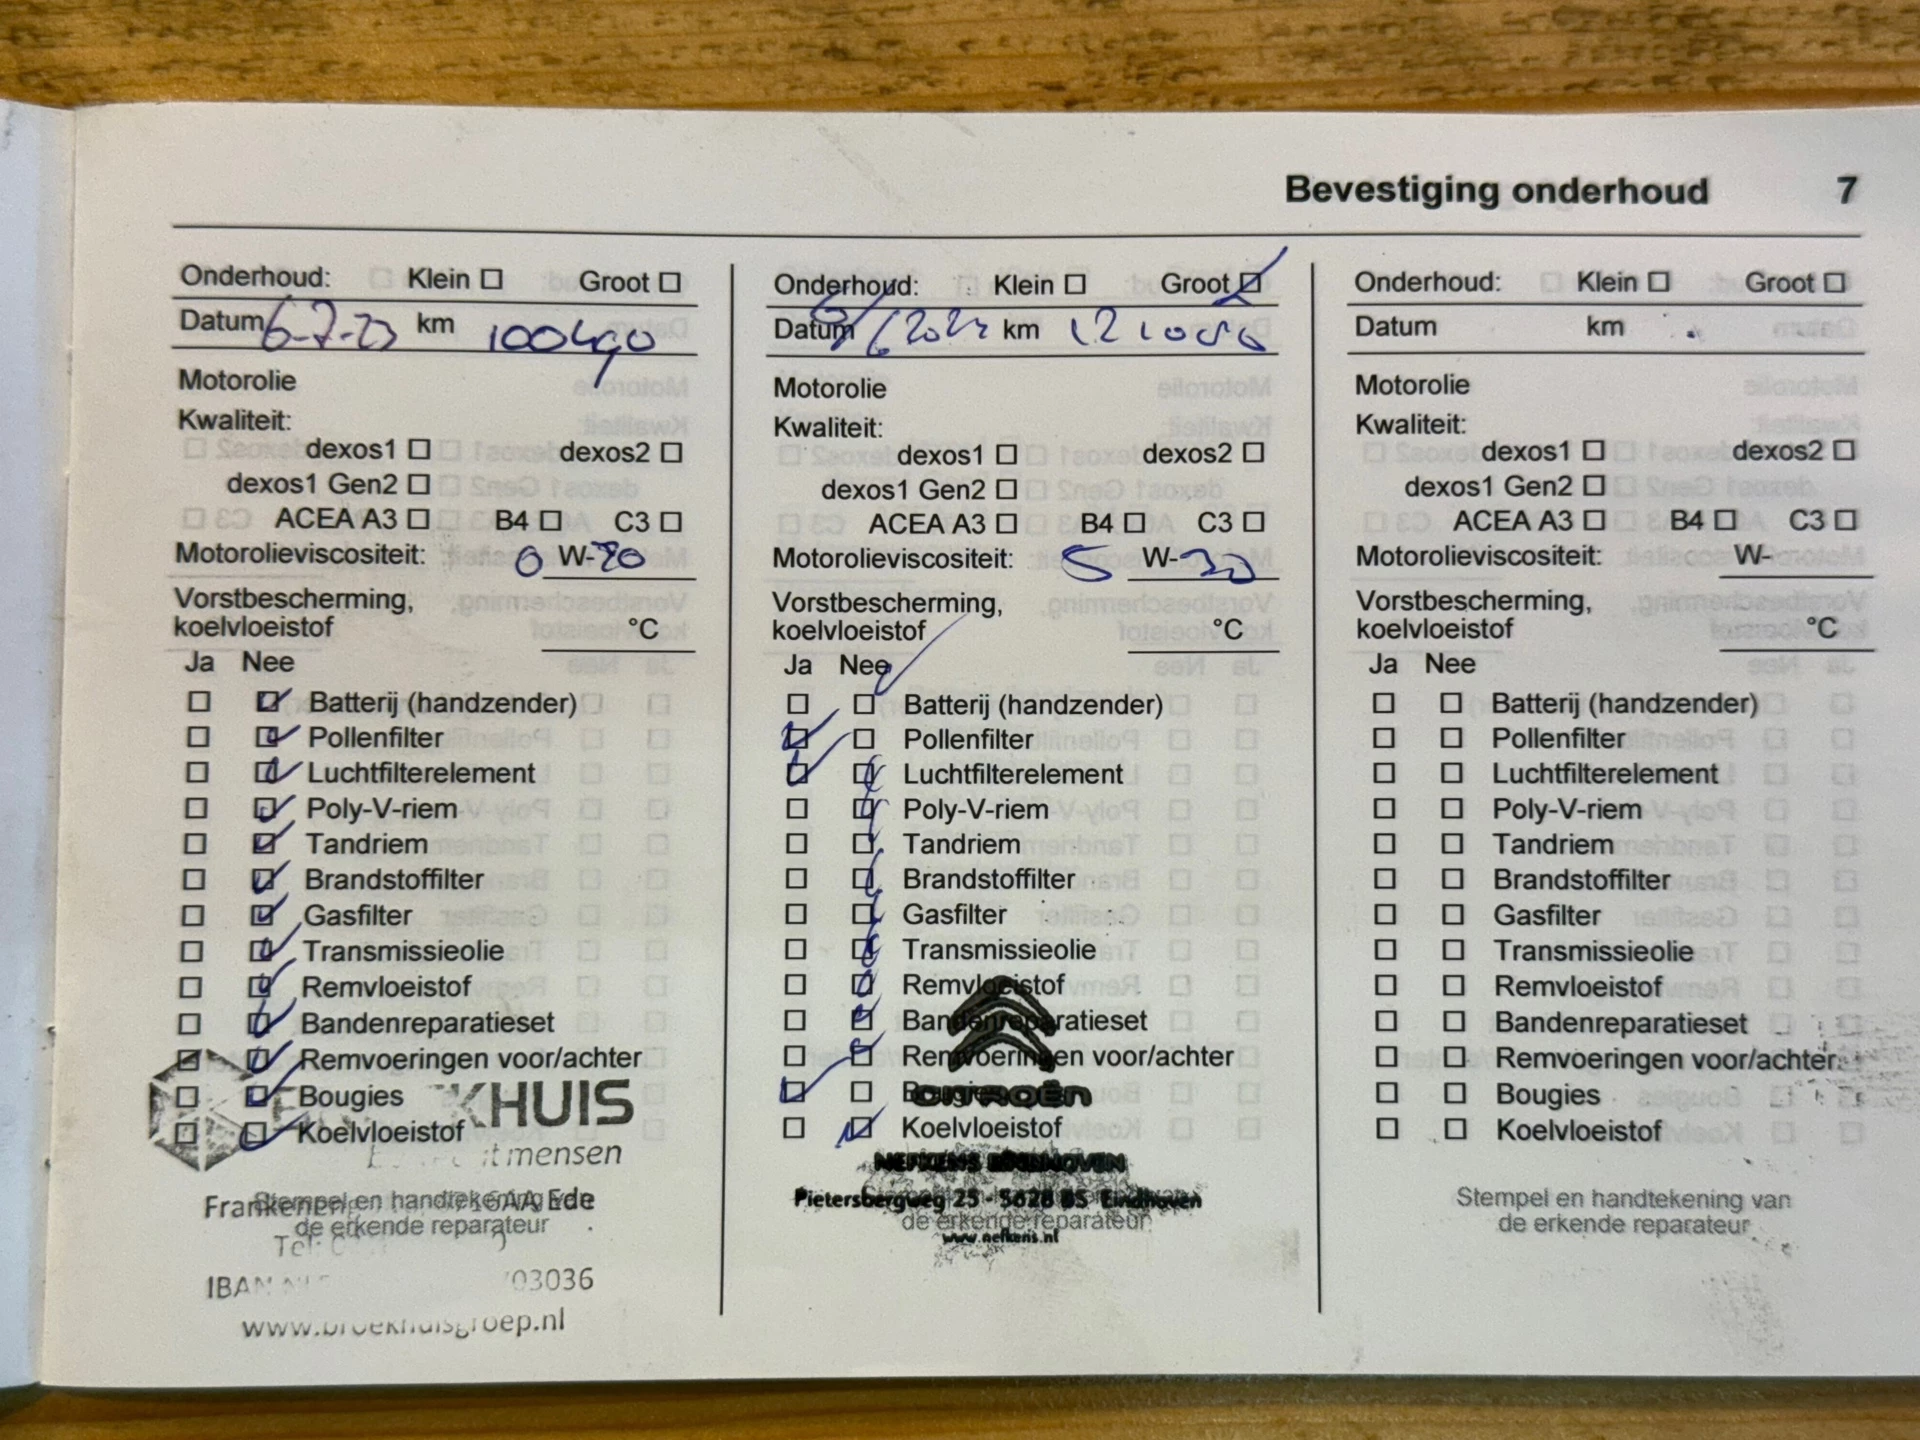 Bevestiging onderhoud 7
Onderhoud: Klein ☐ Groot ☐
Datum 6-7-23 km 100490
Motorolie
Kwaliteit:
dexos1 ☐ dexos2 ☐
dexos1 Gen2 ☐
ACEA A3 ☐ B4 ☐ C3 ☐
Motorolieviscositeit: 0 W-20
Vorstbescherming,
koelvloeistof °C
Ja Nee
☐ ☑ Batterij (handzender)
☐ ☑ Pollenfilter
☐ ☑ Luchtfilterelement
☐ ☑ Poly-V-riem
☐ ☑ Tandriem
☐ ☑ Brandstoffilter
☐ ☑ Gasfilter
☐ ☑ Transmissieolie
☐ ☑ Remvloeistof
☐ ☑ Bandenreparatieset
☐ ☑ Remvoeringen voor/achter
☐ ☑ Bougies
☐ ☑ Koelvloeistof
KHUIS
mensen
Stempel en handtekening van
de erkende reparateur
AA Ede
IBAN 03036
www.broekhuisgroep.nl
Onderhoud: Klein ☐ Groot ☑
Datum km
Motorolie
Kwaliteit:
dexos1 ☐ dexos2 ☐
dexos1 Gen2 ☐
ACEA A3 ☐ B4 ☐ C3 ☐
Motorolieviscositeit: 5 W-30
Vorstbescherming,
koelvloeistof °C
Ja Nee
☐ ☑ Batterij (handzender)
☑ ☐ Pollenfilter
☑ ☐ Luchtfilterelement
☐ ☑ Poly-V-riem
☐ ☑ Tandriem
☐ ☑ Brandstoffilter
☐ ☑ Gasfilter
☐ ☑ Transmissieolie
☐ ☑ Remvloeistof
☐ ☑ Bandenreparatieset
☐ ☑ Remvoeringen voor/achter
☑ ☐ Bougies
☐ ☑ Koelvloeistof
CITROËN
NEFKENS EINDHOVEN
Pietersbergweg 25 - 5628 BS Eindhoven
de erkende reparateur
www.nefkens.nl
Onderhoud: Klein ☐ Groot ☐
Datum km
Motorolie
Kwaliteit:
dexos1 ☐ dexos2 ☐
dexos1 Gen2 ☐
ACEA A3 ☐ B4 ☐ C3 ☐
Motorolieviscositeit: W-
Vorstbescherming,
koelvloeistof °C
Ja Nee
☐ ☐ Batterij (handzender)
☐ ☐ Pollenfilter
☐ ☐ Luchtfilterelement
☐ ☐ Poly-V-riem
☐ ☐ Tandriem
☐ ☐ Brandstoffilter
☐ ☐ Gasfilter
☐ ☐ Transmissieolie
☐ ☐ Remvloeistof
☐ ☐ Bandenreparatieset
☐ ☐ Remvoeringen voor/achter
☐ ☐ Bougies
☐ ☐ Koelvloeistof
Stempel en handtekening van
de erkende reparateur